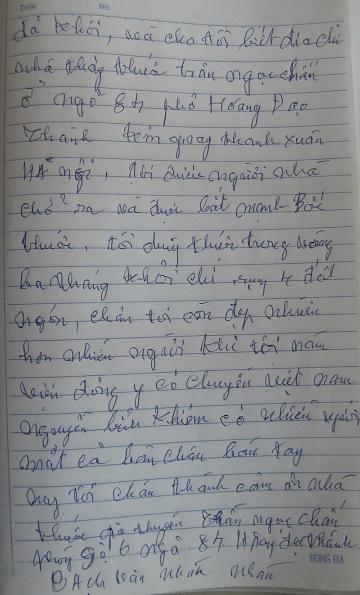 Date No.
đã khỏi, và cho tôi biết địa chỉ
nhà thầy thuốc trần ngọc chấn
ở ngõ 84 phố Hoàng Đạo
Thành kim giang thanh xuân
Hà nội, tôi được người nhà
chở ra và được bắt mạnh Bốc
thuốc, tôi dùng thuốc trong vòng
ba tháng khỏi chỉ rụng 4 đốt
ngón, chân tôi còn đẹp nhiều
hơn nhiều người thì tôi nằm
viện đông y có chuyên việt nam
nguyễn bỉnh khiêm có nhiều người
mất cả bàn chân bàn tay
nay tôi chân thành cảm ơn nhà
thuốc gia truyền trần ngọc chấn
số 6 ngõ 84 Hoàng đạo thành
Bách nhân
HONG HA